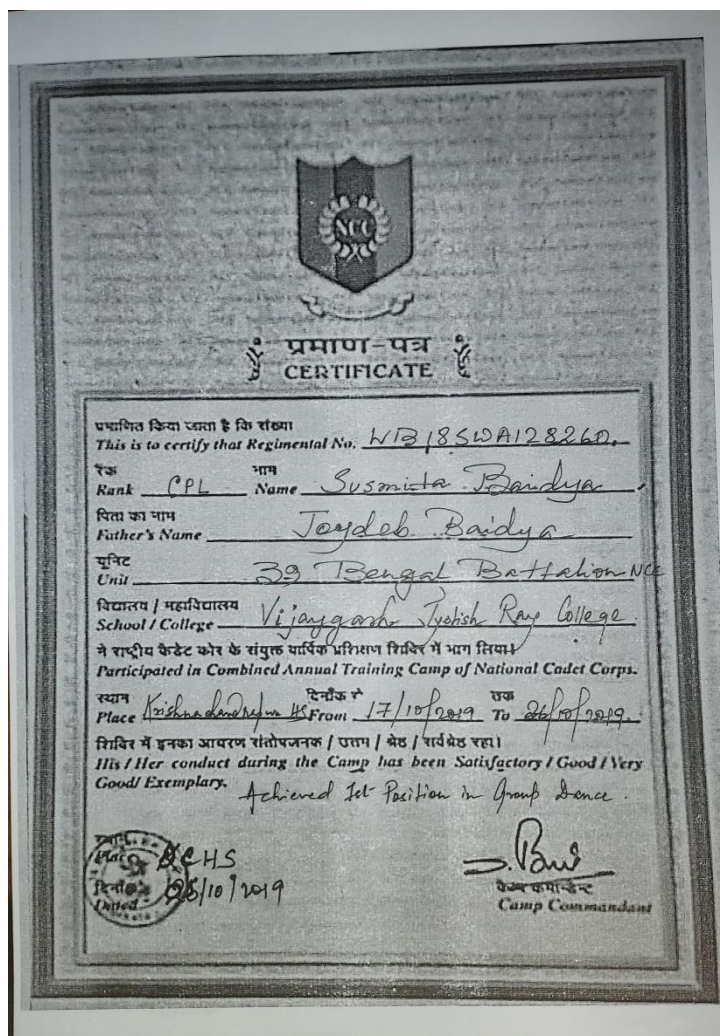 NCC
प्रमाण-पत्र
CERTIFICATE
प्रमाणित किया जाता है कि संख्या
This is to certify that Regimental No. WB18SWA128260.
रैंक नाम
Rank CPL Name Susmita Baidya
पिता का नाम
Father's Name Joydeb Baidya
यूनिट
Unit 39 Bengal Battalion NCC
विद्यालय / महाविद्यालय
School / College Vijaygarh Jyotish Ray College.
ने राष्ट्रीय कैडेट कोर के संयुक्त वार्षिक प्रशिक्षण शिविर में भाग लिया।
Participated in Combined Annual Training Camp of National Cadet Corps.
स्थान दिनाँक से तक
Place Krishnachandrapur HS From 17/10/2019 To 26/10/2019.
शिविर में इनका आचरण संतोषजनक / उत्तम / श्रेष्ठ / सर्वश्रेष्ठ रहा।
His / Her conduct during the Camp has been Satisfactory / Good / Very
Good/ Exemplary. Achieved 1st Position in Group Dance.
स्थान
Place KCHS
दिनाँक
Dated 25/10/2019
कैम्प कमान्डेन्ट
Camp Commandant